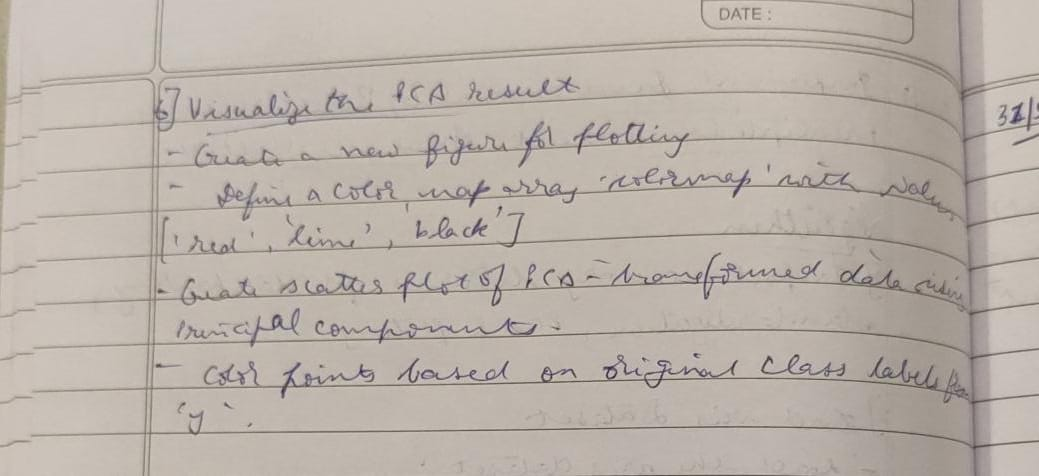 DATE :
6] Visualize the PCA result
- Create a new figure for plotting
- Define a color map array 'colormap' with values
['red', 'lime', 'black']
- Create scatter plot of PCA - transformed data using
principal components.
- Color points based on original class labels from
'y'.